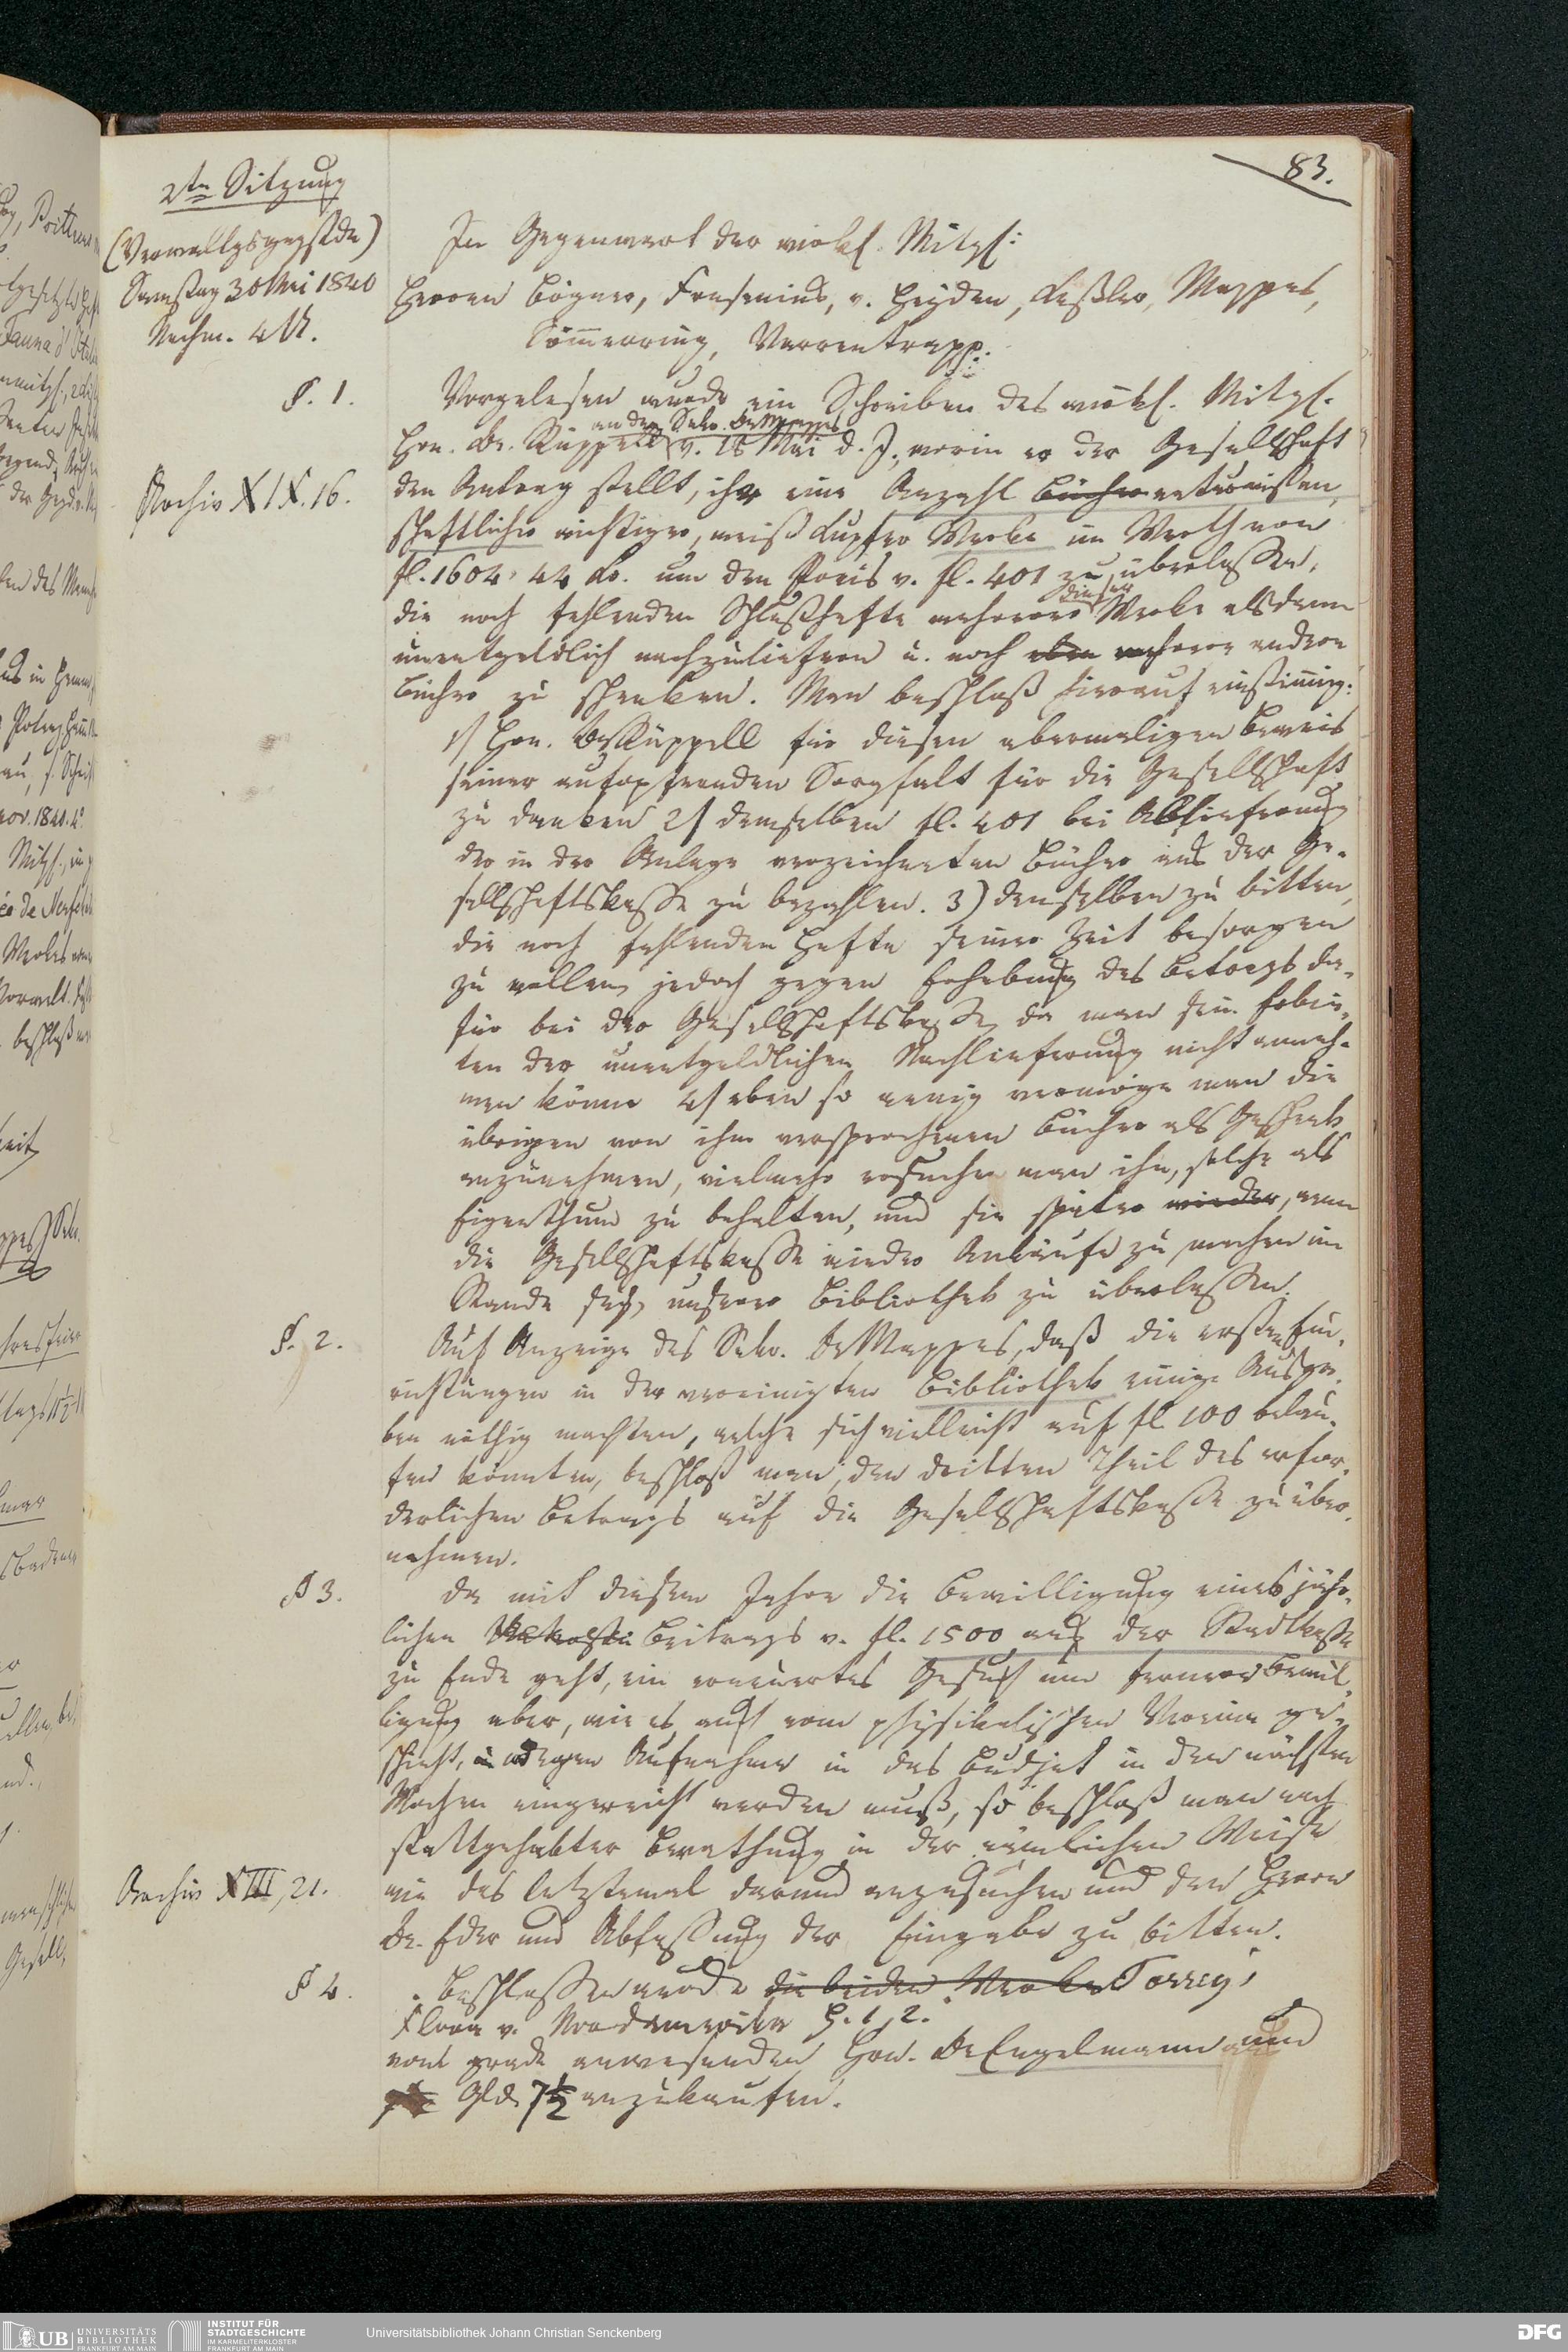 83.
2te Sitzung
(Verwaltgsgegstde)
Samstag 30 Mai 1840
Nachm. 4 U.
In Gegenwart der wirkl. Mitgl:
Herren Bögner, Fresenius, v. Heyden, Keßler, Mappes,
Sömmerring, Varrentrapp.
§. 1.
Vorgelesen wurde ein Schreiben des wirkl. Mitgl.
an den Sekr. Dr Mappes
Hrn. Dr. Rüppell v. 18 Mai d. J., worin er der Gesellschaft
Archiv XIX. 16.
den Antrag stellt, ihr eine Anzahl Bücher naturwissen-
schaftlicher wichtiger, meist Kupfer Werke im Werth von
fl. 1604, 44 Kr. um den Preis v. fl. 401 zu überlassen,
dieser
die noch fehlenden Schlußhefte mehrerer Werke alsdann
unentgeldlich nachzuliefern u. noch eben mehrere andere
Bücher zu schenken. Man beschloß hierauf einstimmig:
1/ Hrn. Dr Rüppell für diesen abermaligen Beweis
seiner aufopfernden Sorgfalt für die Gesellschaft
zu danken 2/ demselben fl. 401 bei Ablieferung
der in der Anlage verzeichneten Bücher aus der Ge-
sellschaftskasse zu bezahlen. 3) denselben zu bitten,
die noch fehlenden Hefte seiner Zeit besorgen
zu wollen, jedoch gegen Erhebung des Betrags da-
für bei der Gesellschaftskasse, da man sein Erbie-
ten der unentgeldlichen Nachlieferung nicht anneh-
men könne 4/ eben so wenig vermöge man die
übrigen von ihm versprochenen Bücher als Geschenk
anzunehmen, vielmehr ersuche man ihn, solche als
Eigenthum zu behalten, und sie später wieder, wenn
die Gesellschaftskasse wieder Ankäufe zu machen im
Stande sey, unserer Bibliothek zu überlassen.
§. 2.
Auf Anzeige des Sekr. Dr Mappes, daß die ersten Ein-
richtungen in der vereinigten Bibliothek einige Ausga-
ben nöthig machten, welche sich vielleicht auf fl 100 belau-
fen könnten, beschloß man, den dritten Theil des erfor-
derlichen Betrags auf die Gesellschaftskasse zu über-
nehmen.
§ 3.
Da mit diesem Jahre die Bewilligung eines jähr-
lichen Beitrags v. fl. 1500 aus der Stadtkasse
zu Ende geht, ein erneuertes Gesuch um fernere Bewil-
ligung aber, wie es auch vom physikalischen Verein ge-
schieht, wegen Aufnahme in das Budjet in den nächsten
Wochen eingereicht werden muß, so beschloß man nach
stattgehabter Berathung in der nämlichen Weise
Archiv XIII, 21.
wie das letztemal darum anzusuchen und den Herrn
Dr. Eder um Abfassung der Eingabe zu bitten.
§ 4.
Beschlossen wurde die beiden Werke Torrey,
Flora v. Nordamerika H. 1, 2.
vom grade anwesenden Hrn. Dr Engelmann um
Gld 7½ anzukaufen.
UB UNIVERSITÄTS BIBLIOTHEK FRANKFURT AM MAIN
INSTITUT FÜR STADTGESCHICHTE IM KARMELITERKLOSTER FRANKFURT AM MAIN
Universitätsbibliothek Johann Christian Senckenberg
DFG